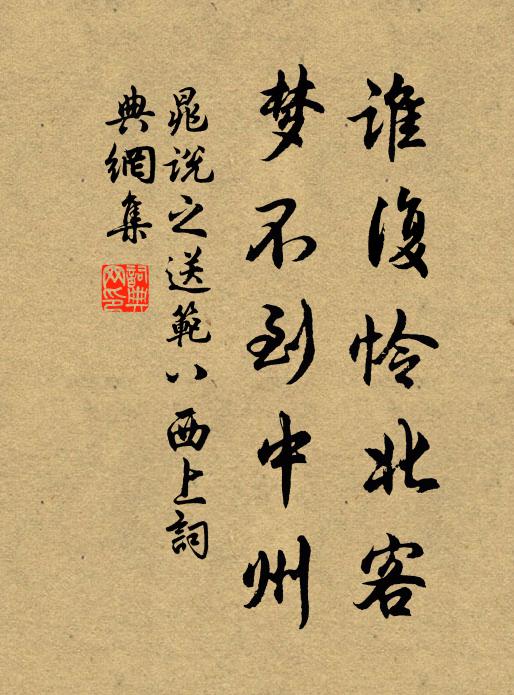 谁復怜北客
梦不到中州
晁说之送範八西上詞
典網集
詞典
网印